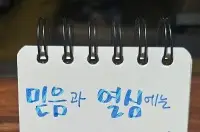 믿음과 열심에는